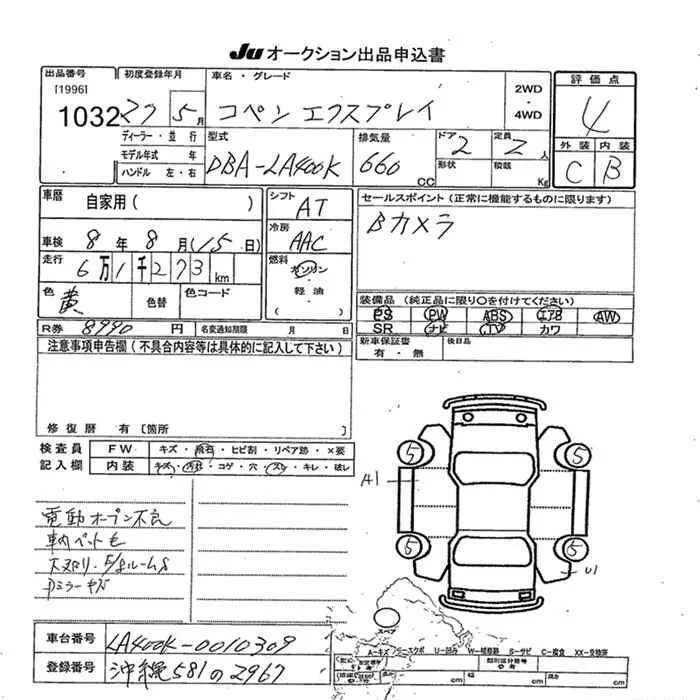 Ju オークション出品申込書
出品番号 初度登録年月 車名・グレード 2WD・4WD 評価点
[1996]
1032 27 5月 コペン エクスプレイ 4
ディーラー・並行 型式 排気量 ドア 2 定員 2人 外装 内装
モデル年式 年 DBA-LA400K 660CC 形状 積載 Kg C B
ハンドル 左・右
車歴 自家用( ) シフト AT セールスポイント(正常に機能するものに限ります)
冷房 AAC Bカメラ
車検 8年8月(15日)
走行 6万1千273km 燃料 ガソリン
軽油
( )
色 黄 色替 色コード 装備品(純正品に限り○を付けてください)
PS PW ABS エアB AW
R券 8990円 名変通知期限 月 日 SR ナビ TV カワ
注意事項申告欄(不具合内容等は具体的に記入して下さい) 新車保証書 有・無 後日品
修復歴 有[箇所 ]
検査員 FW キズ・飛石・ヒビ割・リペア跡・×要
記入欄 内装 キズ・汚れ・コゲ・穴・スレ・キレ・破レ
5 5
A1
5 5
U1
電動オープン不良
車内ペット毛
Dミラーキズ
スペア
車台番号 LA400K-0010309
登録番号 沖縄581の2967
A-キズ U-凹み W-補修跡 S-サビ C-腐食 XX-交換済
cm cm cm